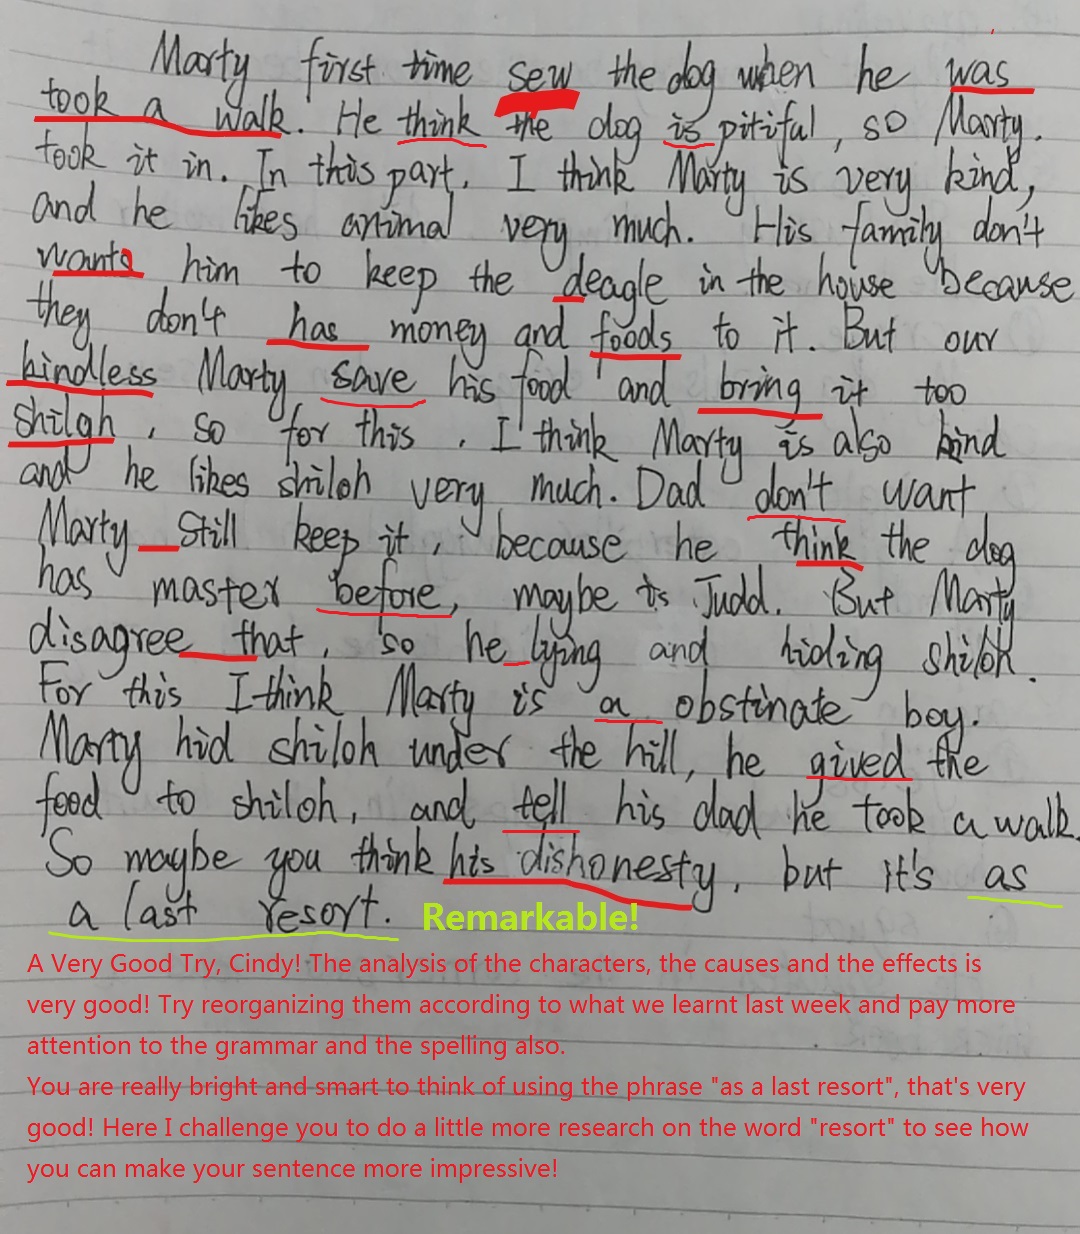 Marty first time sew the dog when he was
took a walk. He think the dog is pitiful, so Marty.
took it in. In this part, I think Marty is very kind,
and he likes animal very much. His family don't
wants him to keep the deagle in the house because
they don't has money and foods to it. But our
kindless Marty save his food and bring it too
shilgh, so for this, I think Marty is also kind
and he likes shiloh very much. Dad don't want
Marty still keep it, because he think the dog
has master before, maybe is Judd. But Marty
disagree that, so he lying and hiding shiloh.
For this I think Marty is a obstinate boy.
Marty hid shiloh under the hill, he gived the
food to shiloh, and tell his dad he took a walk.
So maybe you think his dishonesty, but it's as
a last resort. Remarkable!
A Very Good Try, Cindy! The analysis of the characters, the causes and the effects is
very good! Try reorganizing them according to what we learnt last week and pay more
attention to the grammar and the spelling also.
You are really bright and smart to think of using the phrase "as a last resort", that's very
good! Here I challenge you to do a little more research on the word "resort" to see how
you can make your sentence more impressive!